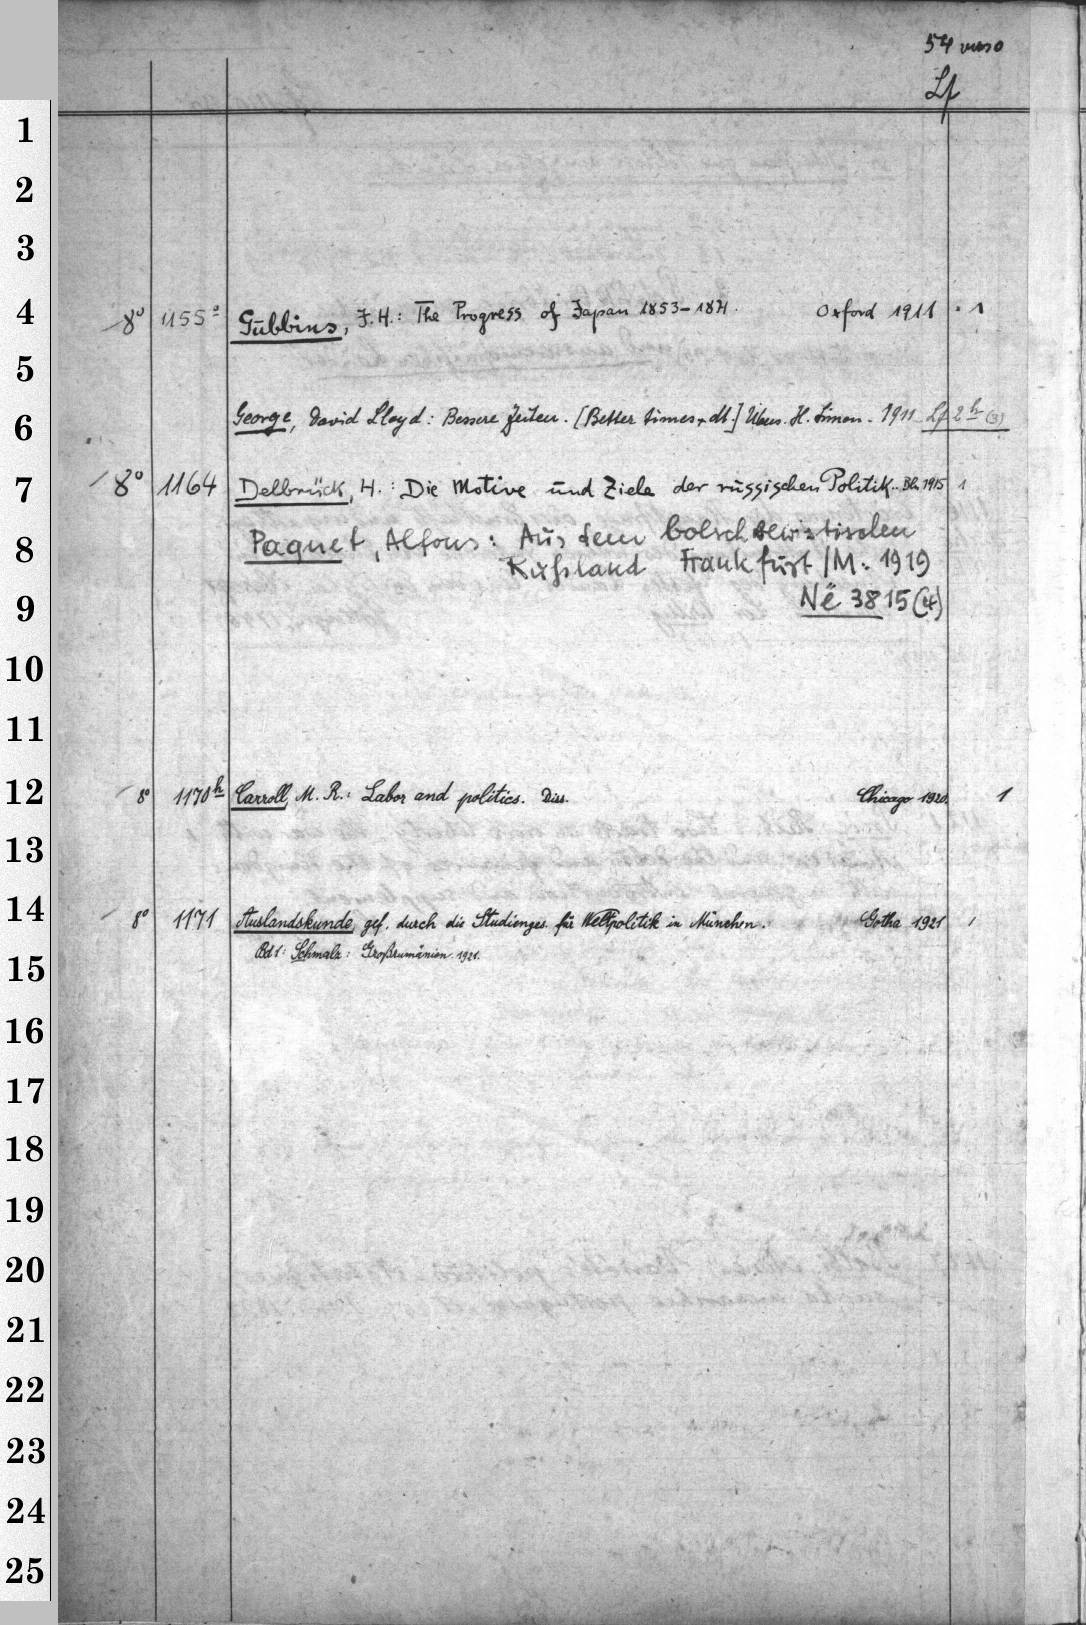 54 verso
Lf
1
2
3
4 8° 1155ª Gubbins, J.H.: The Progress of Japan 1853-1871. Oxford 1911 1
5
6 George, David Lloyd: Bessere Zeiten. [Better times, dt.] Übers. H. Simon. 1911 Lf 2 h (3)
7 8° 1164 Delbrück, H.: Die Motive und Ziele der russischen Politik. Bln 1915 1
8 Paquet, Alfons: Aus dem bolschewistischen
Rußland Frankfurt/M. 1919
9 Në 3815(4)
10
11
12 8° 1170h Carroll, M. R.: Labor and politics. Diss. Chicago 1920. 1
13
14 8° 1171 Auslandskunde, gef. durch die Studienges. für Weltpolitik in München. Gotha 1921 1
15 Bd 1: Schmalz: Großrumänien. 1921.
16
17
18
19
20
21
22
23
24
25